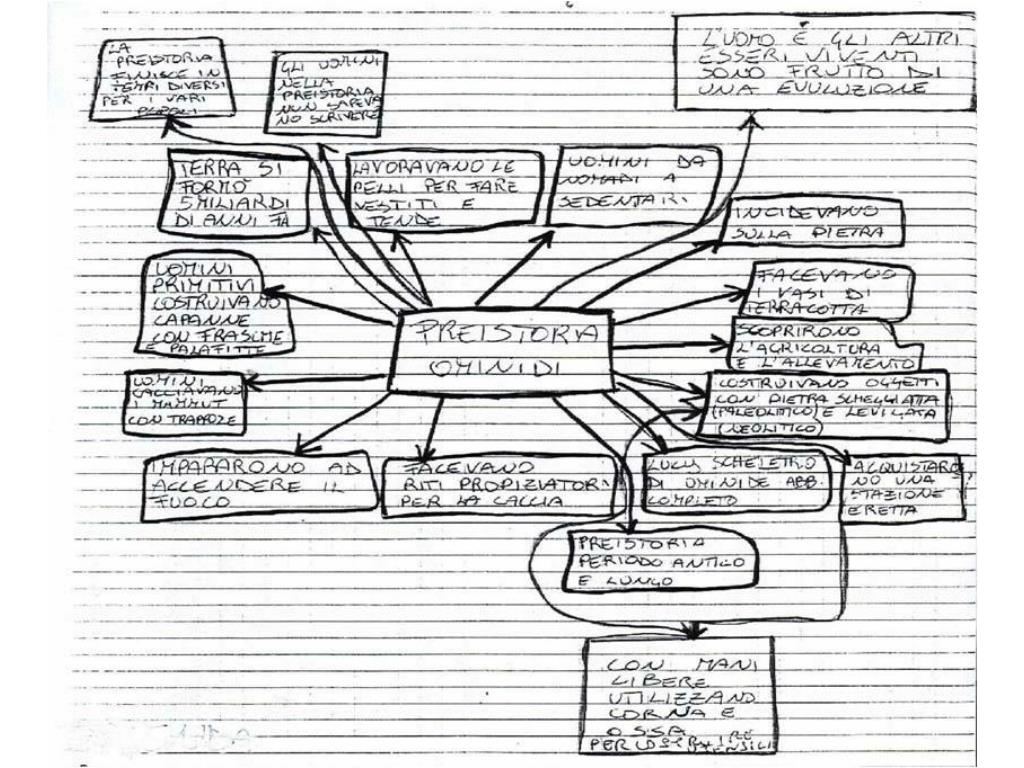 LA
PREISTORIA
FINISCE IN
TEMPI DIVERSI
PER I VARI
POPOLI
GLI UOMINI
NELLA
PREISTORIA
NON SAPEVA
NO SCRIVERE
L'UOMO E GLI ALTRI
ESSERI VIVENTI
SONO FRUTTO DI
UNA EVULUZIONE
TERRA SI
FORMÒ
5 MILIARDI
DI ANNI FA
LAVORAVANO LE
PELLI PER FARE
VESTITI E
TENDE
UOMINI DA
NOMADI A
SEDENTARI
INCIDEVANO
SULLA PIETRA
UOMINI
PRIMITIVI
COSTRUIVANO
CAPANNE
CON FRASCHE
E PALAFITTE
FACEVANO
I VASI DI
TERRACOTTA
PREISTORIA
OMINIDI
SCOPRIRONO
L'AGRICOLTURA
E L'ALLEVAMENTO
UOMINI
CACCIAVANO
I MAMMUT
CON TRAPPOLE
COSTRUIVANO OGGETTI
CON PIETRA SCHEGGIATA
(PALEOLITICO) E LEVIGATA
(NEOLITICO)
IMPARARONO AD
ACCENDERE IL
FUOCO
FACEVANO
RITI PROPIZIATORI
PER LA CACCIA
LUCY SCHELETRO
DI OMINIDE ABB.
COMPLETO
ACQUISTARO
NO UNA
STAZIONE
ERETTA
PREISTORIA
PERIODO ANTICO
E LUNGO
CON MANI
LIBERE
UTILIZZANO
CORNA E
OSSA
PER COSTRUIRE
UTENSILI